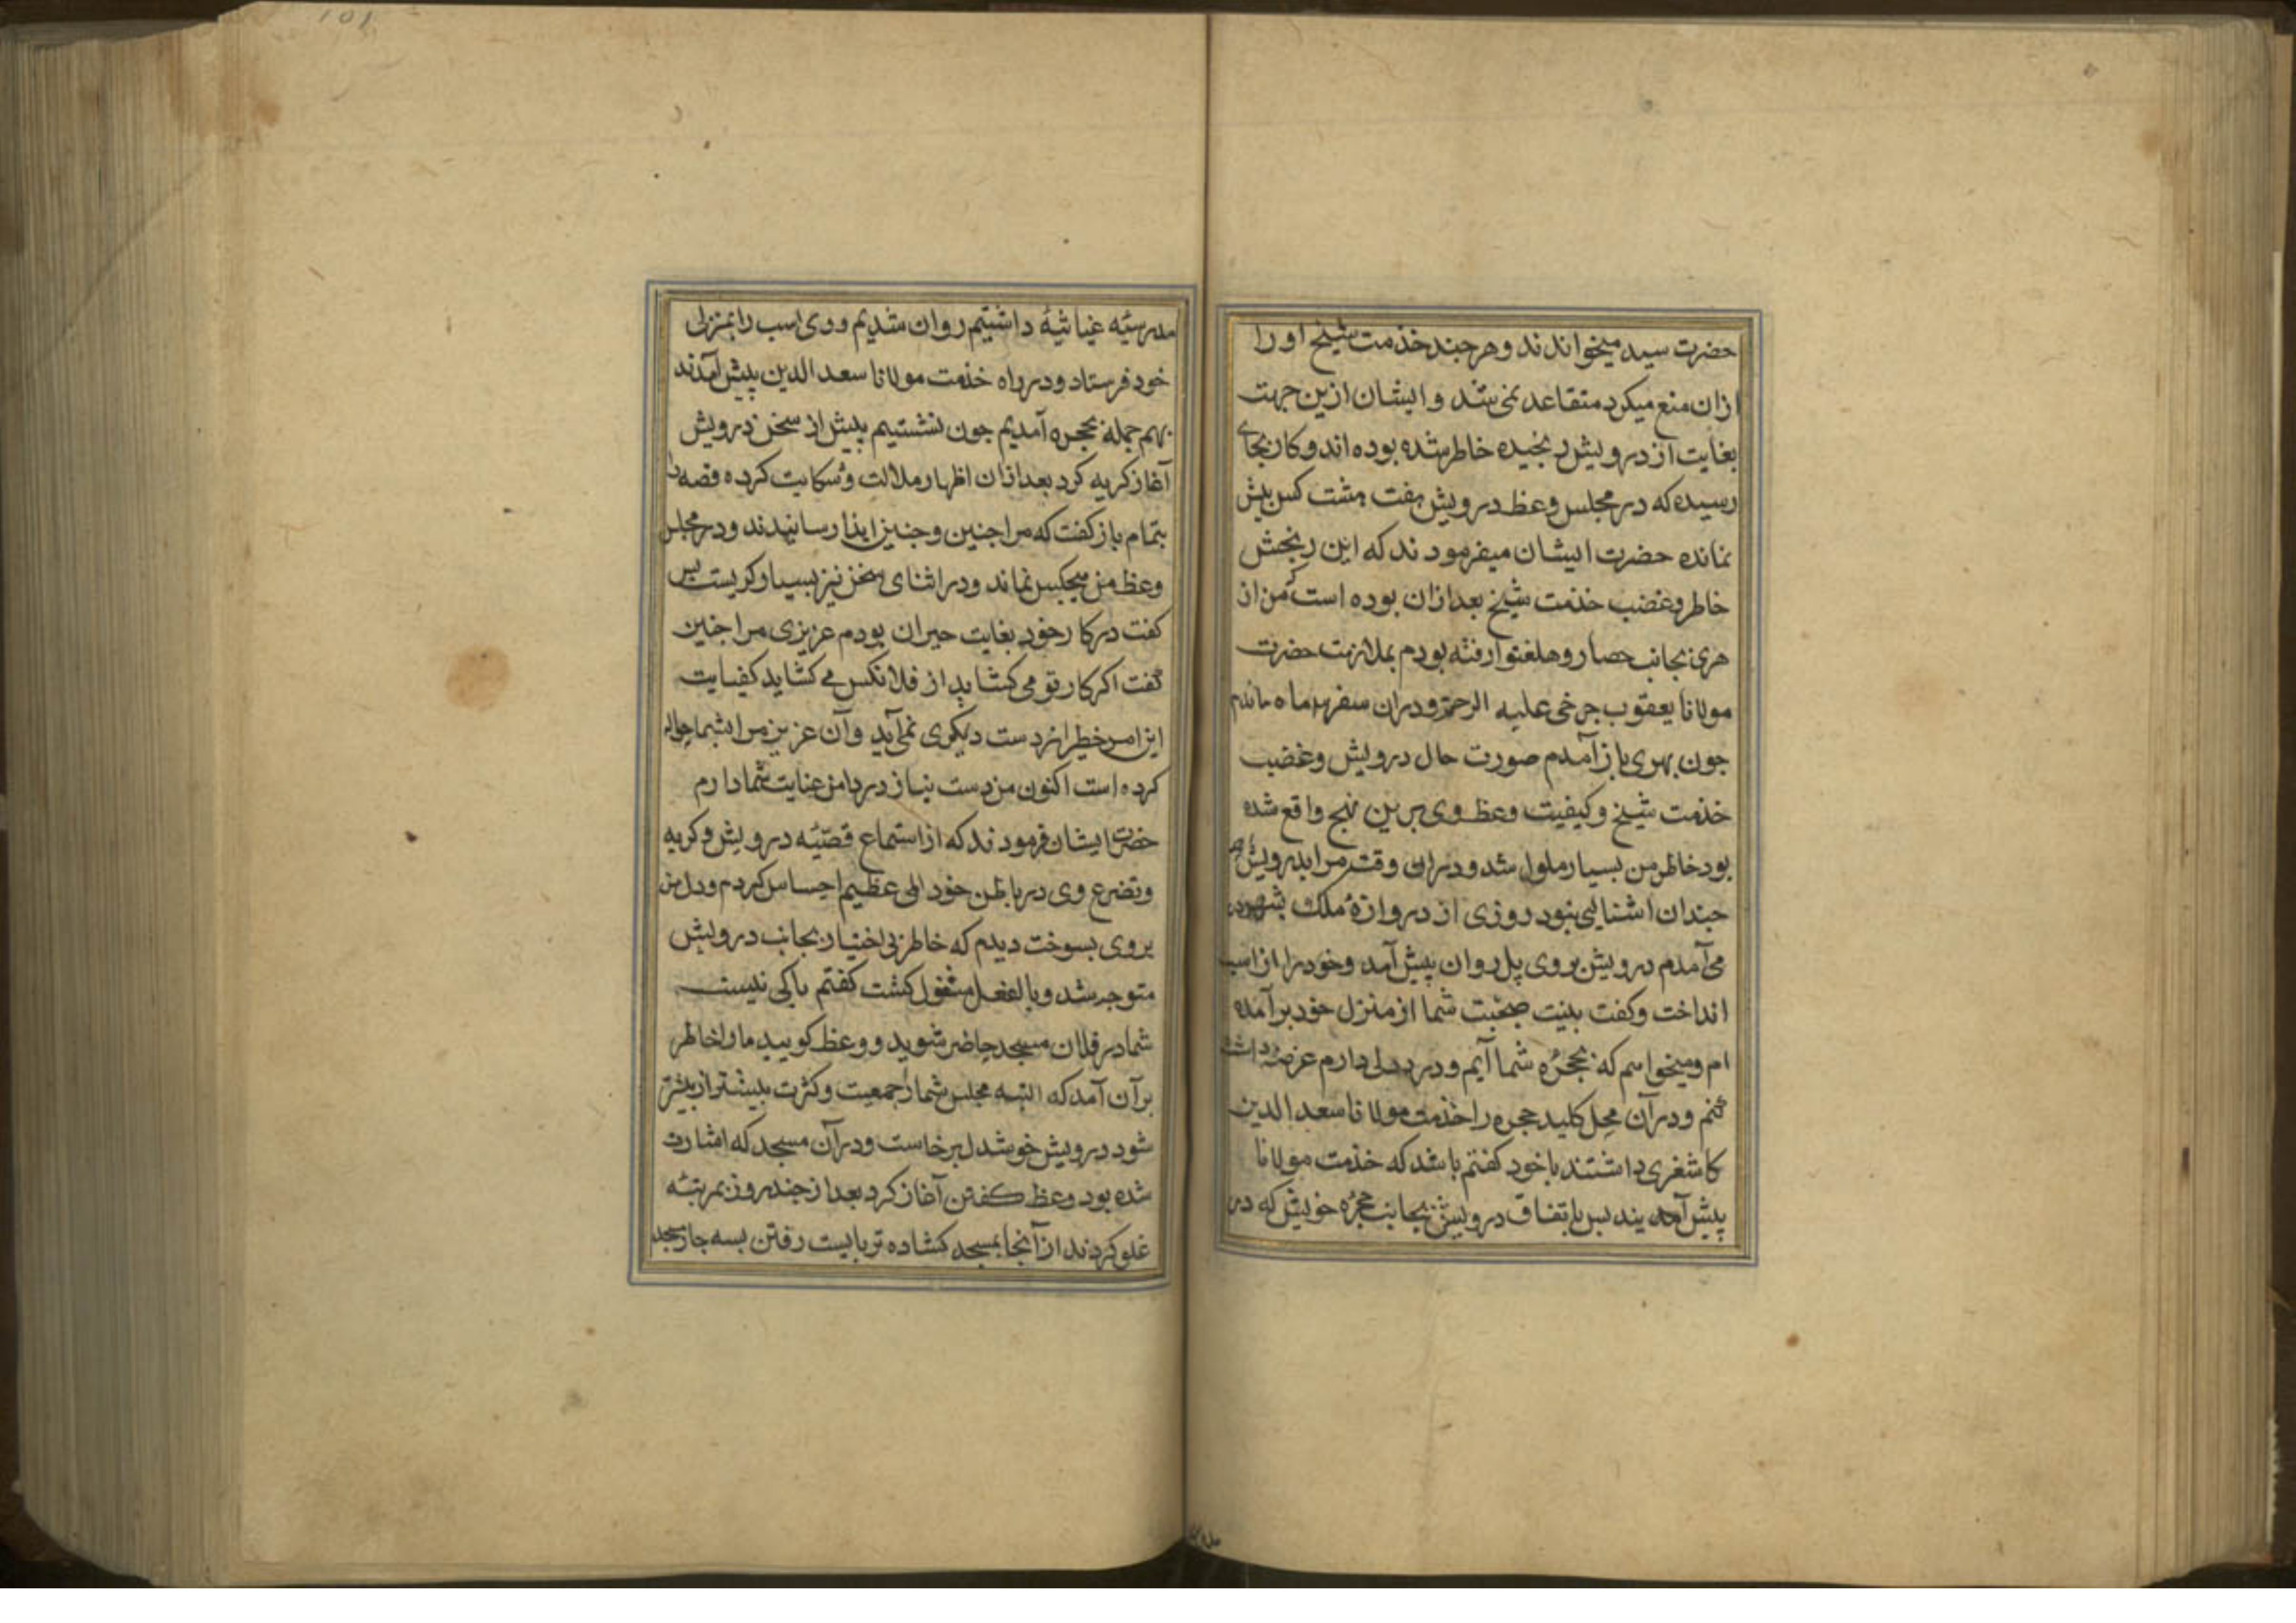 حضرت سید میخواندند و هرچند خذمت شیخ او را
ازان منع میکرد متقاعد نمی شد و ایشان ازین جهت
بغایت از درویش رنجیده خاطر شده بوده اند و کار بجای
رسیده که در مجلس وعظ درویش هفت هشت کس بیش
نمانده حضرت ایشان میفرمودند که این رنجش
خاطر و غضب خذمت شیخ بعد ازان بوده است که من از
هری بجانب حصار و هلغتو رفته بودم بملازمت حضرت
مولانا یعقوب جرخی علیه الرحمة و دران سفر ماه ماندم
جون بهری باز آمدم صورت حال درویش و غضب
خذمت شیخ و کیفیت وعظ وی برین نهج واقع شده
بود خاطر من بسیار ملول شد و دران وقت مرا بدرویش
جندان اشنایی نبود روزی از دروازهٔ ملک بشهر در
می آمدم درویش بر روی پل روان پیش آمد و خود را از اسب
انداخت و کفت بنیت صحبت شما از منزل خود برآمده
ام و میخواهم که بحجرهٔ شما آیم و درد دلی دارم عرضه داشت
کنم و در آن محل کلید حجره را خذمت مولانا سعد الدین
کاشغری داشتند با خود کفتم باشد که خذمت مولانا
پیش آیند پس باتفاق درویش بجانب حجرهٔ خویش که در
مدرسهٔ غیاثیهٔ داشتیم روان شدیم و وی اسب را بمنزل
خود فرستاد و در راه خذمت مولانا سعد الدین پیش آمدند
بهم جمله بحجره آمدیم جون نشستیم پیش از سخن درویش
آغاز کریه کرد بعد ازان اظهار ملالت و شکایت کرده قصه را
بتمام باز کفت که مرا جنین و جنین ایذا رسانیدند و در مجلس
وعظ من هیجکس نماند و در اثنای سخن نیز بسیار کریست پس
کفت در کار خود بغایت حیران بودم عزیزی مرا جنین
گفت اکر کار تو می کشاید از فلانکس می کشاید کفایت
این امر خطیر از دست دیکری نمی آید و آن عزیز مرا بشما حواله
کرده است اکنون من دست نیاز در دامن عنایت شما دارم
حضرت ایشان فرمودند که از استماع قصّهٔ درویش و کریه
و تضرع وی در باطن خود المی عظیم احساس کردم و دل من
بر وی بسوخت دیدم که خاطر بی اختیار بجانب درویش
متوجه شد و بالفعل مشغول کشت کفتم باکی نیست
شما در فلان مسجد حاضر شوید و وعظ کویید ما را خاطر
بر آن آمد که البته مجلس شما از جمعیت و کثرت بیشتر از پیشتر
شود درویش خوشدل برخاست و در آن مسجد که اشارت
شده بود وعظ کفتن آغاز کرد بعد از جند روز بمرتبهٔ
غلو کردند از آنجا بمسجد کشاده تر بایست رفتن بسه جار مسجد